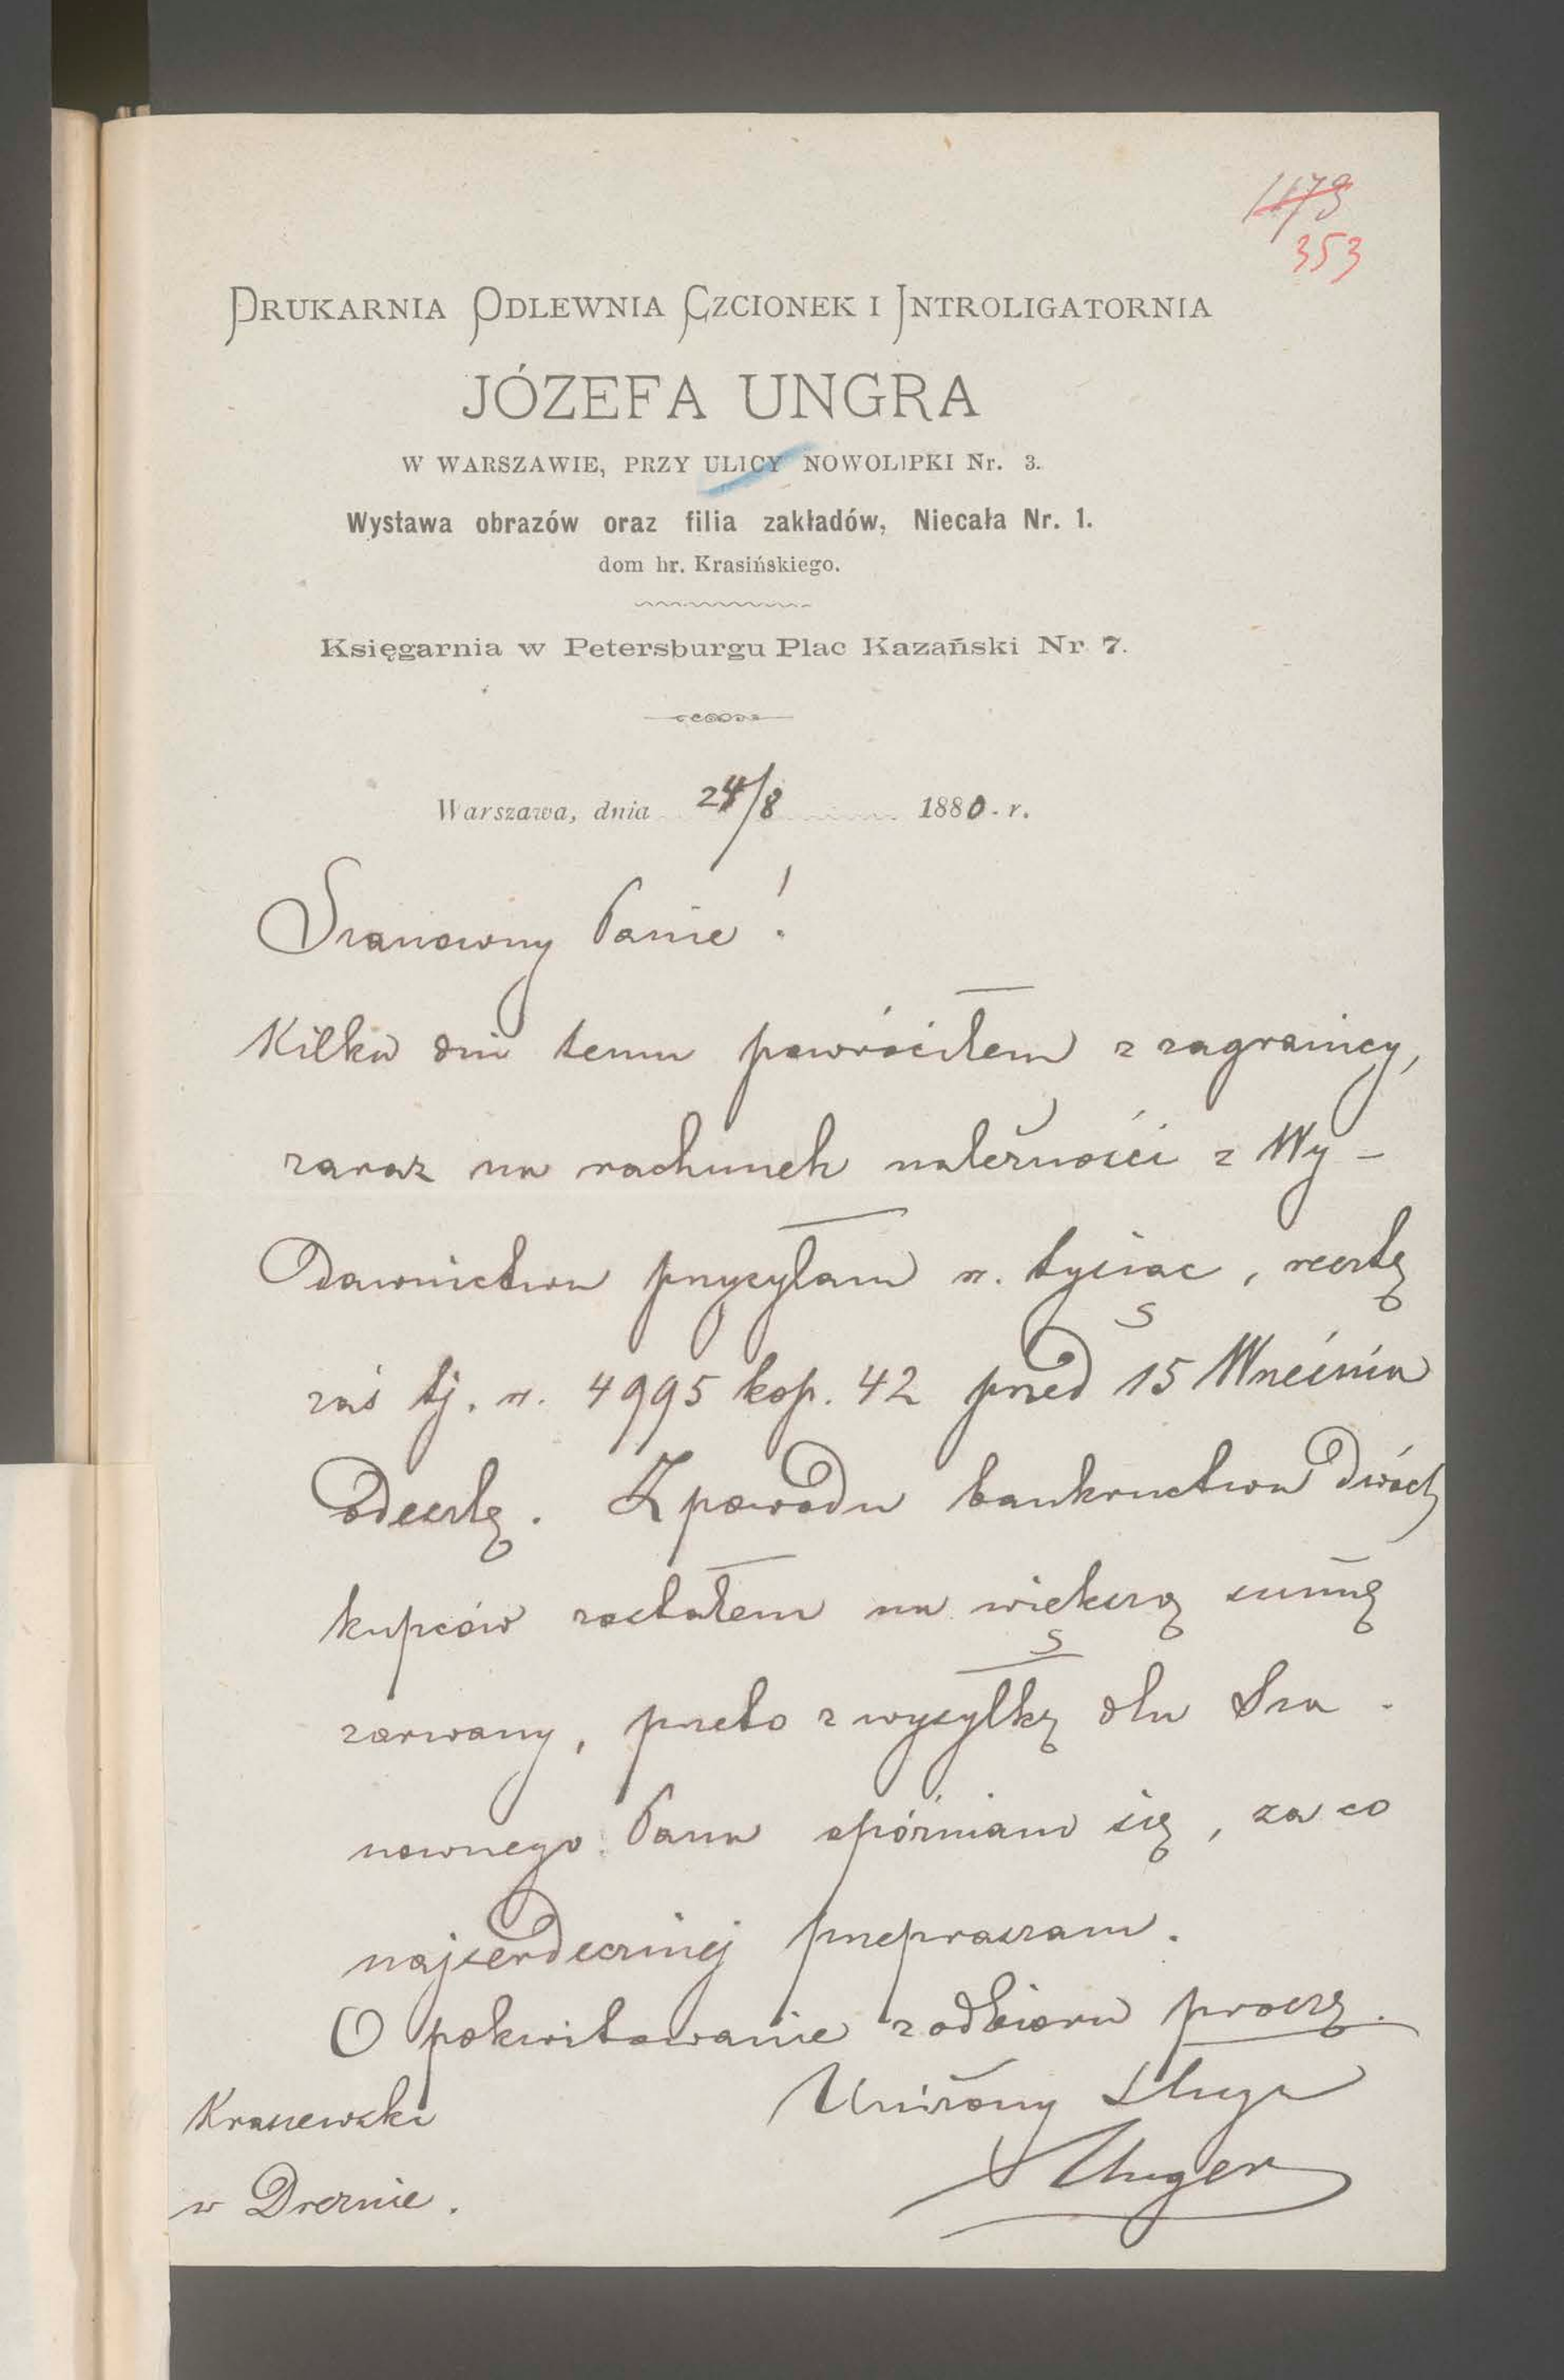 1173
353
DRUKARNIA ODLEWNIA CZCIONEK I INTROLIGATORNIA
JÓZEFA UNGRA
W WARSZAWIE, PRZY ULICY NOWOLIPKI Nr. 3.
Wystawa obrazów oraz filia zakładów, Niecała Nr. 1.
dom hr. Krasińskiego.
Księgarnia w Petersburgu Plac Kazański Nr 7.
Warszawa, dnia 24/8 1880. r.
Szanowny Panie!
Kilka dni temu powróciłem z zagranicy,
zaraz na rachunek należności z Wy-
dawnictwa przysyłam rs. tysiac, resztę
zaś tj. rs. 4995 kop. 42 przed 15 Września
odeszlę. Z powodu bankructwa dwóch
kupców zostałem na wiekszą sum̄ę
zarwany, przeto z wysyłką dla Sza-
nownego Pana spóźniam się, za co
najserdeczniej przepraszam.
O pokwitowanie z odbioru proszę.
Uniżony Sługa
Unger
Kraszewski
w Dreznie.